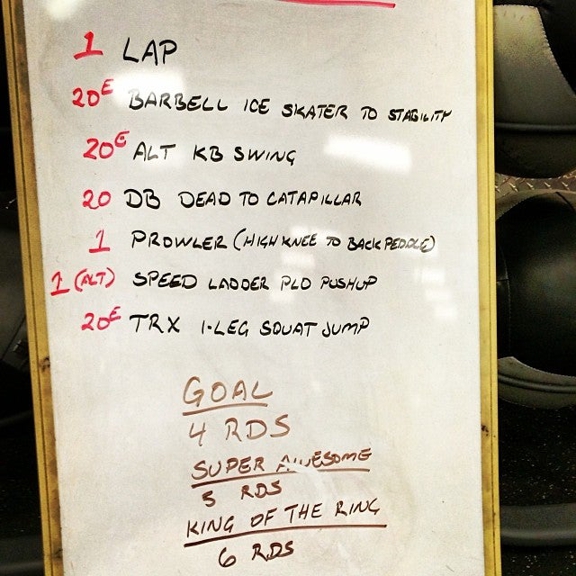 1 LAP
20E BARBELL ICE SKATER TO STABILITY
20E ALT KB SWING
20 DB DEAD TO CATAPILLAR
1 PROWLER (HIGH KNEE TO BACK PEDDLE)
1 (ALT) SPEED LADDER PLO PUSHUP
20E TRX 1-LEG SQUAT JUMP
GOAL
4 RDS
SUPER AWESOME
5 RDS
KING OF THE RING
6 RDS